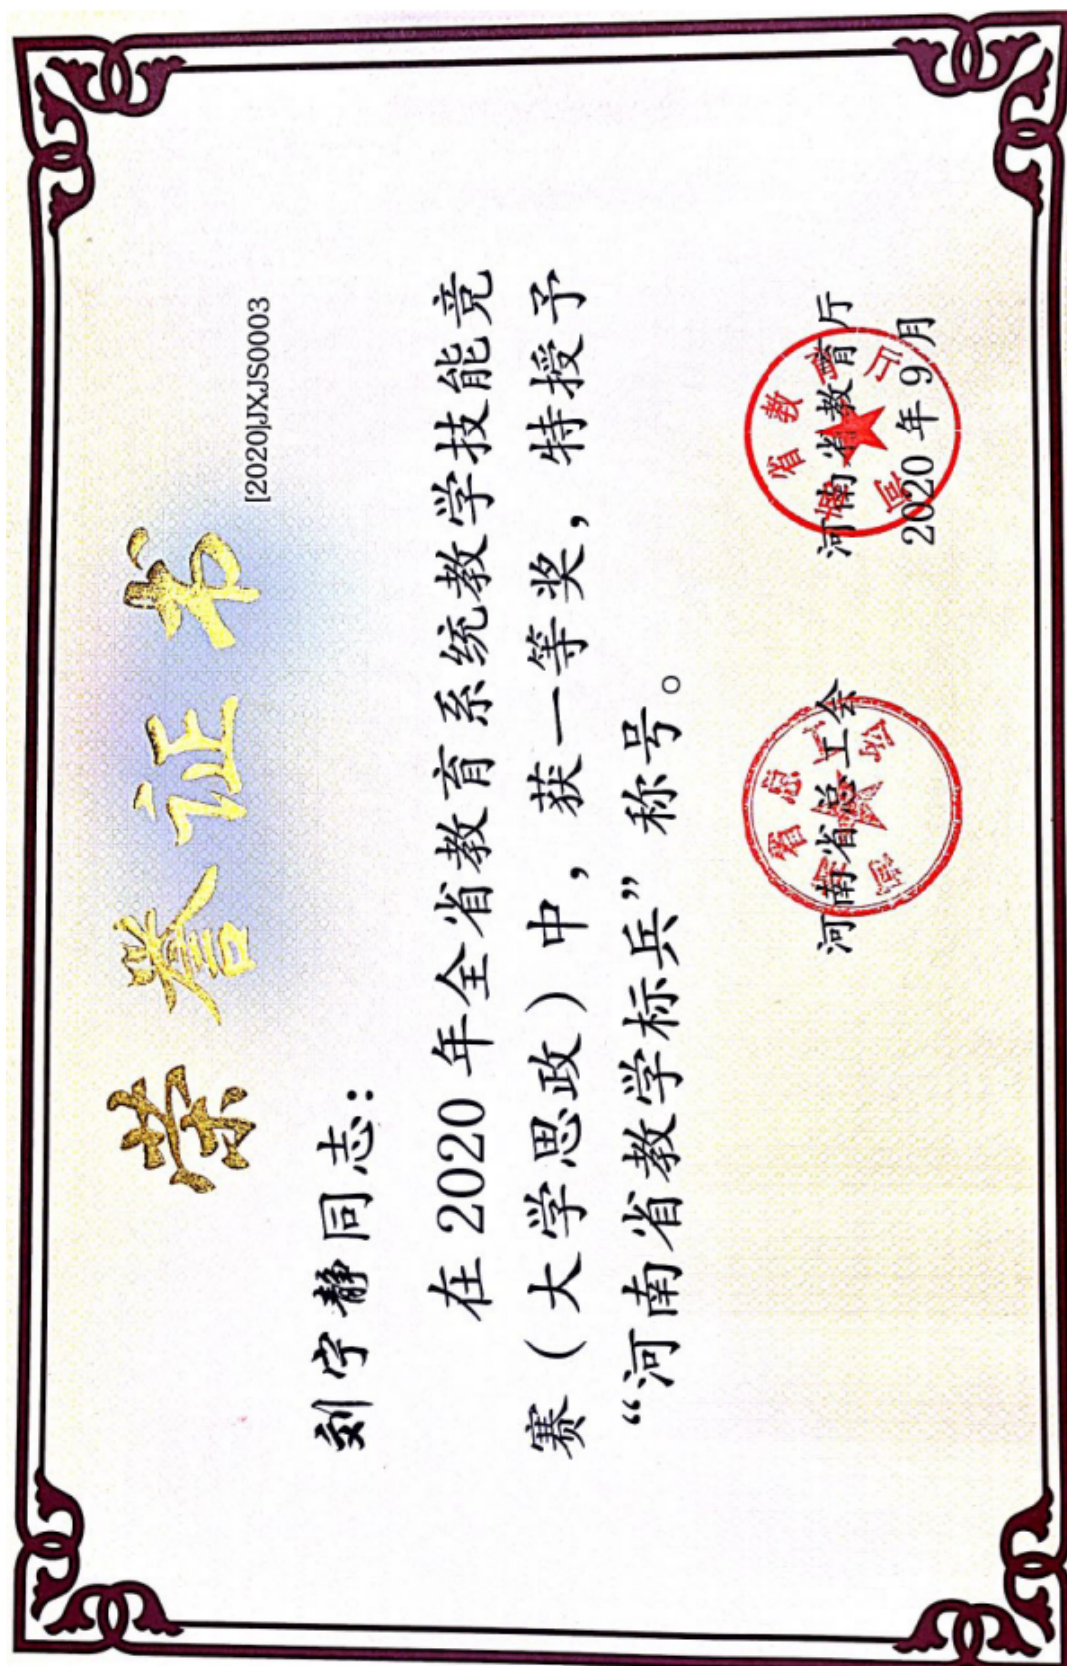 荣誉证书
[2020]JXJS0003
刘宇静同志：
在 2020 年全省教育系统教学技能竞
赛（大学思政）中，获一等奖，特授予
“河南省教学标兵”称号。
河南省总工会 河南省教育厅
2020 年 9 月
河南省总工会
河南省教育厅